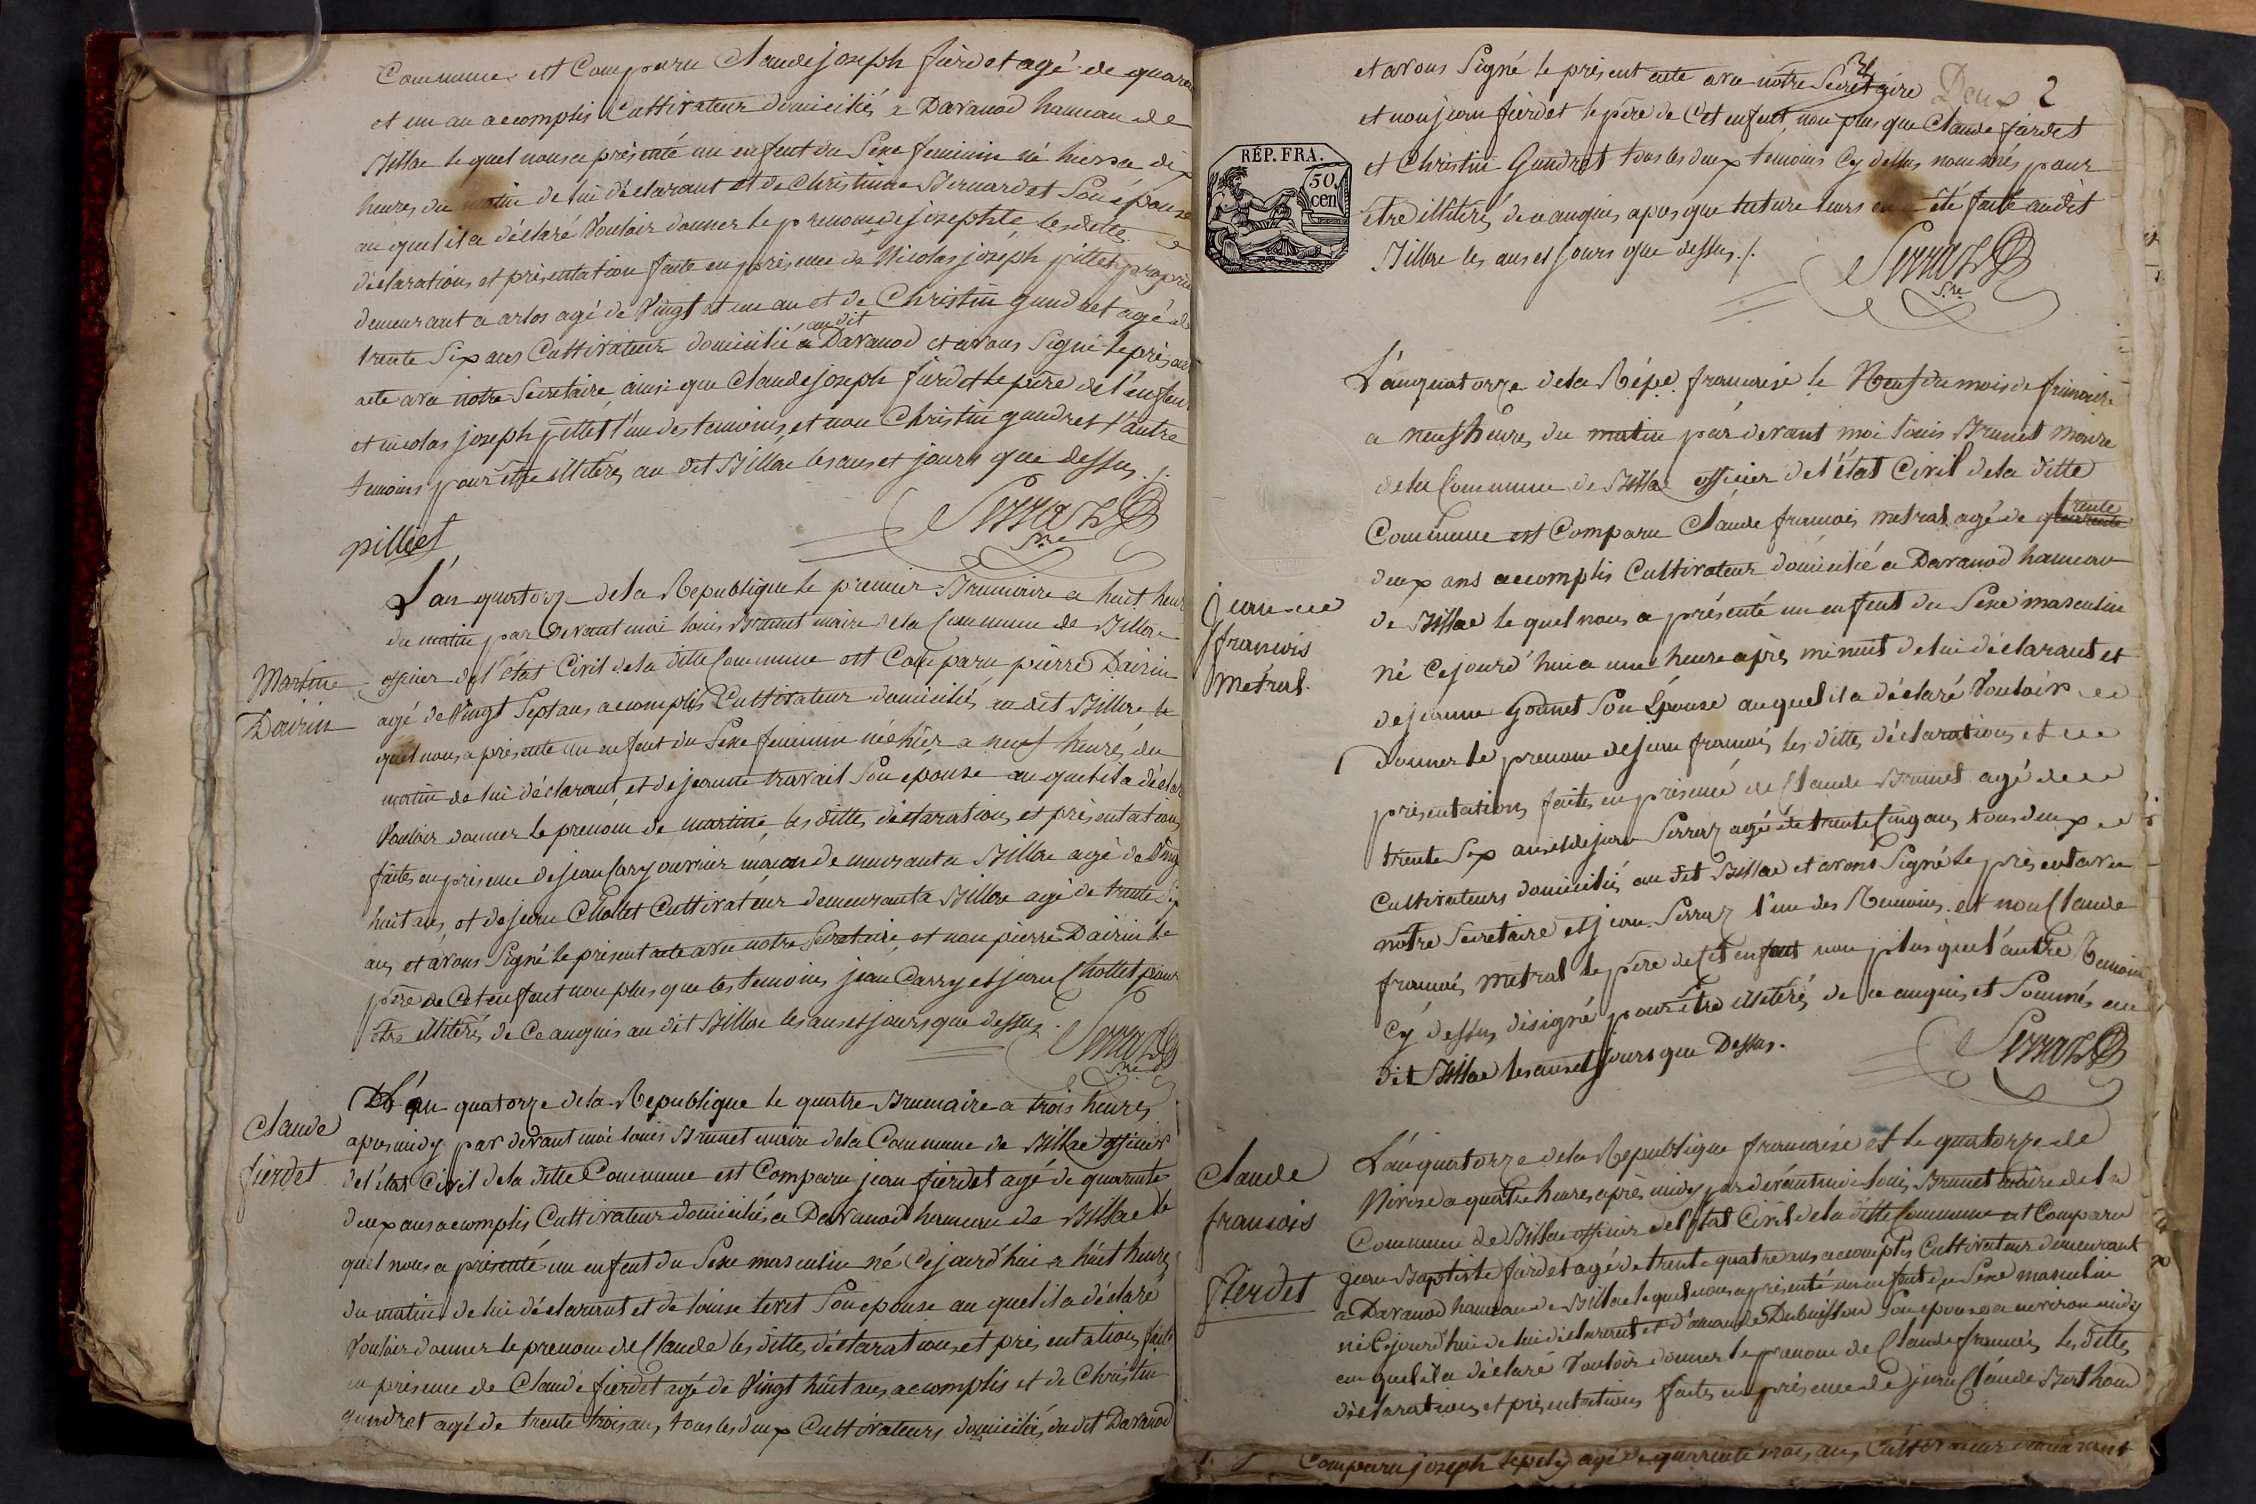 Commune est Comparu Claude joseph fierdet agé de quaran
et un an accomplis Cultivateur domicilié a Davanod hameau de
Billac le quel nous a présenté un enfant du Sexe feminin né hier a dix
heures du matin de lui déclarant et de Christinne Bernardet Son épouse
au quel il a déclaré Vouloir donner le prenom de josephte les dittes
déclarations et présentation faite en présence de Nicolas joséph pillet
demeurant a arlos agé de Vingt et un an et de Christin gundret agé de
trente Six ans Cultivateur domicilié audit Davanod et avons Signé le présant
acte avec notre Secretaire, ainsi que Claude joseph fierdet le père de l'enfant
et nicolas joseph pillet l'un des temoins, et non Christin gundret l'autre
temoins pour être illitéré, au dit Billac les ans et jours que dessus ./.
Serraz
Sre
pilliet
L'an quatorze de la Republique le premier Brumaire a huit heur
du matin par devant moi louis Brunet maire de la Commune de Billac
officier de l'état Civil de la ditte Commune est Comparu pierre Dairin
Martine
Dairin
agé de Vingt Sept ans accomplis Cultivateur domicilié au dit Billac le
quel nous a présenté un enfant du Sexe feminin né hier a neuf heures du
matin de lui déclarant, et de jeanne travail Son epouse au quel il a déclar
Vouloir donner le prenom de martine les dittes déclarations et présentations
faites en présence de jean Cary ouvrier maçon demeurant a Billac agé de Ving
huit ans, et de jean Chollet Cultivateur demeurant a Billac agé de trente Six
ans, et avons Signé le présent acte avec notre Secretaire, et non pierre Dairin le
père de Cet enfant non plus que les temoins jean Carry et jean Chollet pour
être illitérés de Ce anquis au dit Billac les ans et jours que dessus.
Serraz
Sre
Claude
fierdet
L'an quatorze de la Republique le quatre Brumaire a trois heures
apres midy par devant moi louis Brunet maire de la Commune de Billac officier
de l'état Civil de la ditte Commune est Comparu jean fierdet agé de quarante
deux ans accomplis Cultivateur domicilié a Davanod hameau de Billac le
quel nous a présenté un enfant du Sexe masculin né Cejourd'hui a huit heures
du matin de lui déclarant et de louise teret Son epouse au quel il a déclaré
Vouloir donner le prenom de Claude les dittes déclarations et présentations faite
en présence de Claude fierdet agé de Vingt huit ans accomplis et de Christin
gundret agé de trente trois ans, tous les deux Cultivateurs domiciliés au dit Davanod
et avons Signé le présent acte avec nôtre Secretaire
Deux 2
et non jean fierdet le père de Cet enfant non plus que Claude fierdet
RÉP. FRA.
50
cen
et Christin Gundret tous les deux temoins Cy dessus nommés pour
être illitéré, de ce anquis, apres que lecture leurs en a été faite audit
Billac les ans et jours que dessus ./.
Serraz
Sre
L'an quatorze de la Répe. francaise le Neuf du mois de frimaire
a neuf heures du matin par devant moi louis Brunet Maire
de la Commune de Billac officier de l'état Civil de la ditte
Commune est Comparu Claude francois metral agé de quarante trente
deux ans accomplis Cultivateur domicilié a Davanod hameau
Jean
francois
Metral.
de Billac le quel nous a présenté un enfant du Sexe masculin
né Cejourd'hui a une heure après minuit de lui déclarant et
de jeanne gonnet Son Épouse au quel il a déclaré Vouloir
donner le prenom de jean francois les dittes déclarations et
présentations faites en présence de Claude Brunet agé de
trente Six ans et de jean Serraz agé de trente Cinq ans tous deux
Cultivateurs domiciliés au dit Billac et avons Signé le présent avec
notre Secretaire et jean Serraz l'un des temoins et non Claude
francois metral le père de Cet enfant non plus que l'autre temoin
Cy dessus, désigné pour être illitérés de ce anquis et Sommés au
dit Billac les ans et jours que Dessus.
Serraz
Claude
francois
fierdet
L'an quatorze de la Republique francaise et le quatorze de
Nivose a quatre heures après midy par devant moi louis Brunet maire de la
Commune de Billac officier de l'état Civil de la ditte Commune est Comparu
jean Baptiste fierdet agé de trente quatre ans accomplis Cultivateur demeurant
a Davanod hameau de Billac le quel nous a présenté un enfant du Sexe masculin
né Cejourd'hui de lui déclarant et d' Dubuisson Son epouse a environ midy
au quel il a déclaré Vouloir donner le prenom de Claude francois les dittes
déclarations et présentations faites en présence de jean Claude Berthoud
Comparu joseph agé de quarente trois ans Cultivateur demeurant